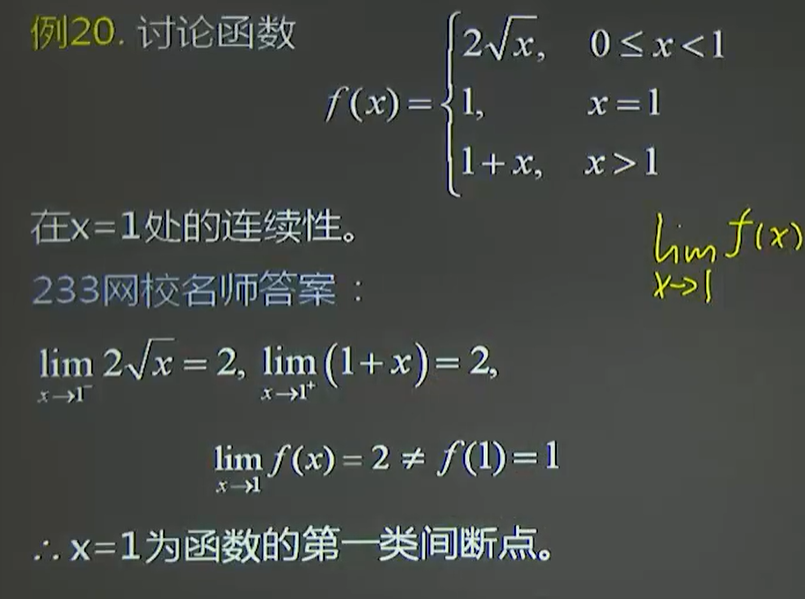 例20. 讨论函数
f(x) = { 2√x, 0 ≤ x < 1
1, x = 1
1 + x, x > 1
在x=1处的连续性。
lim f(x)
x→1
233网校名师答案：
lim 2√x = 2, lim (1 + x) = 2,
x→1⁻ x→1⁺
lim f(x) = 2 ≠ f(1) = 1
x→1
∴ x=1为函数的第一类间断点。